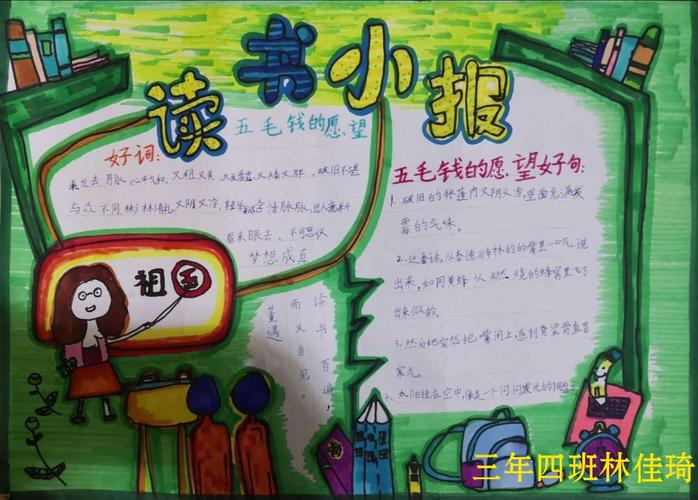 读书小报
五毛钱的愿望
好词：
来龙去脉、心平气和、又粗又臭、又矮又胖、破旧不堪
与众不同、彬彬有礼、又阴又冷、轻手、含情脉脉、出人意料
眉来眼去、不可思议
梦想成真
祖国
读书百遍，
而义自见。
董遇
五毛钱的愿望好句：
1、破旧的帐篷内又阴又凉，里面充满发
霉的气味。
2、这番话，从泰德的嘴里一口气说
出来，如同黄蜂从燃烧的蜂窝里飞了
出来似的。
3、然后她突然把嘴闭上，感到脊梁骨直冒
寒气。
4、太阳挂在空中，像是一个闪闪发光的
三年四班林佳琦